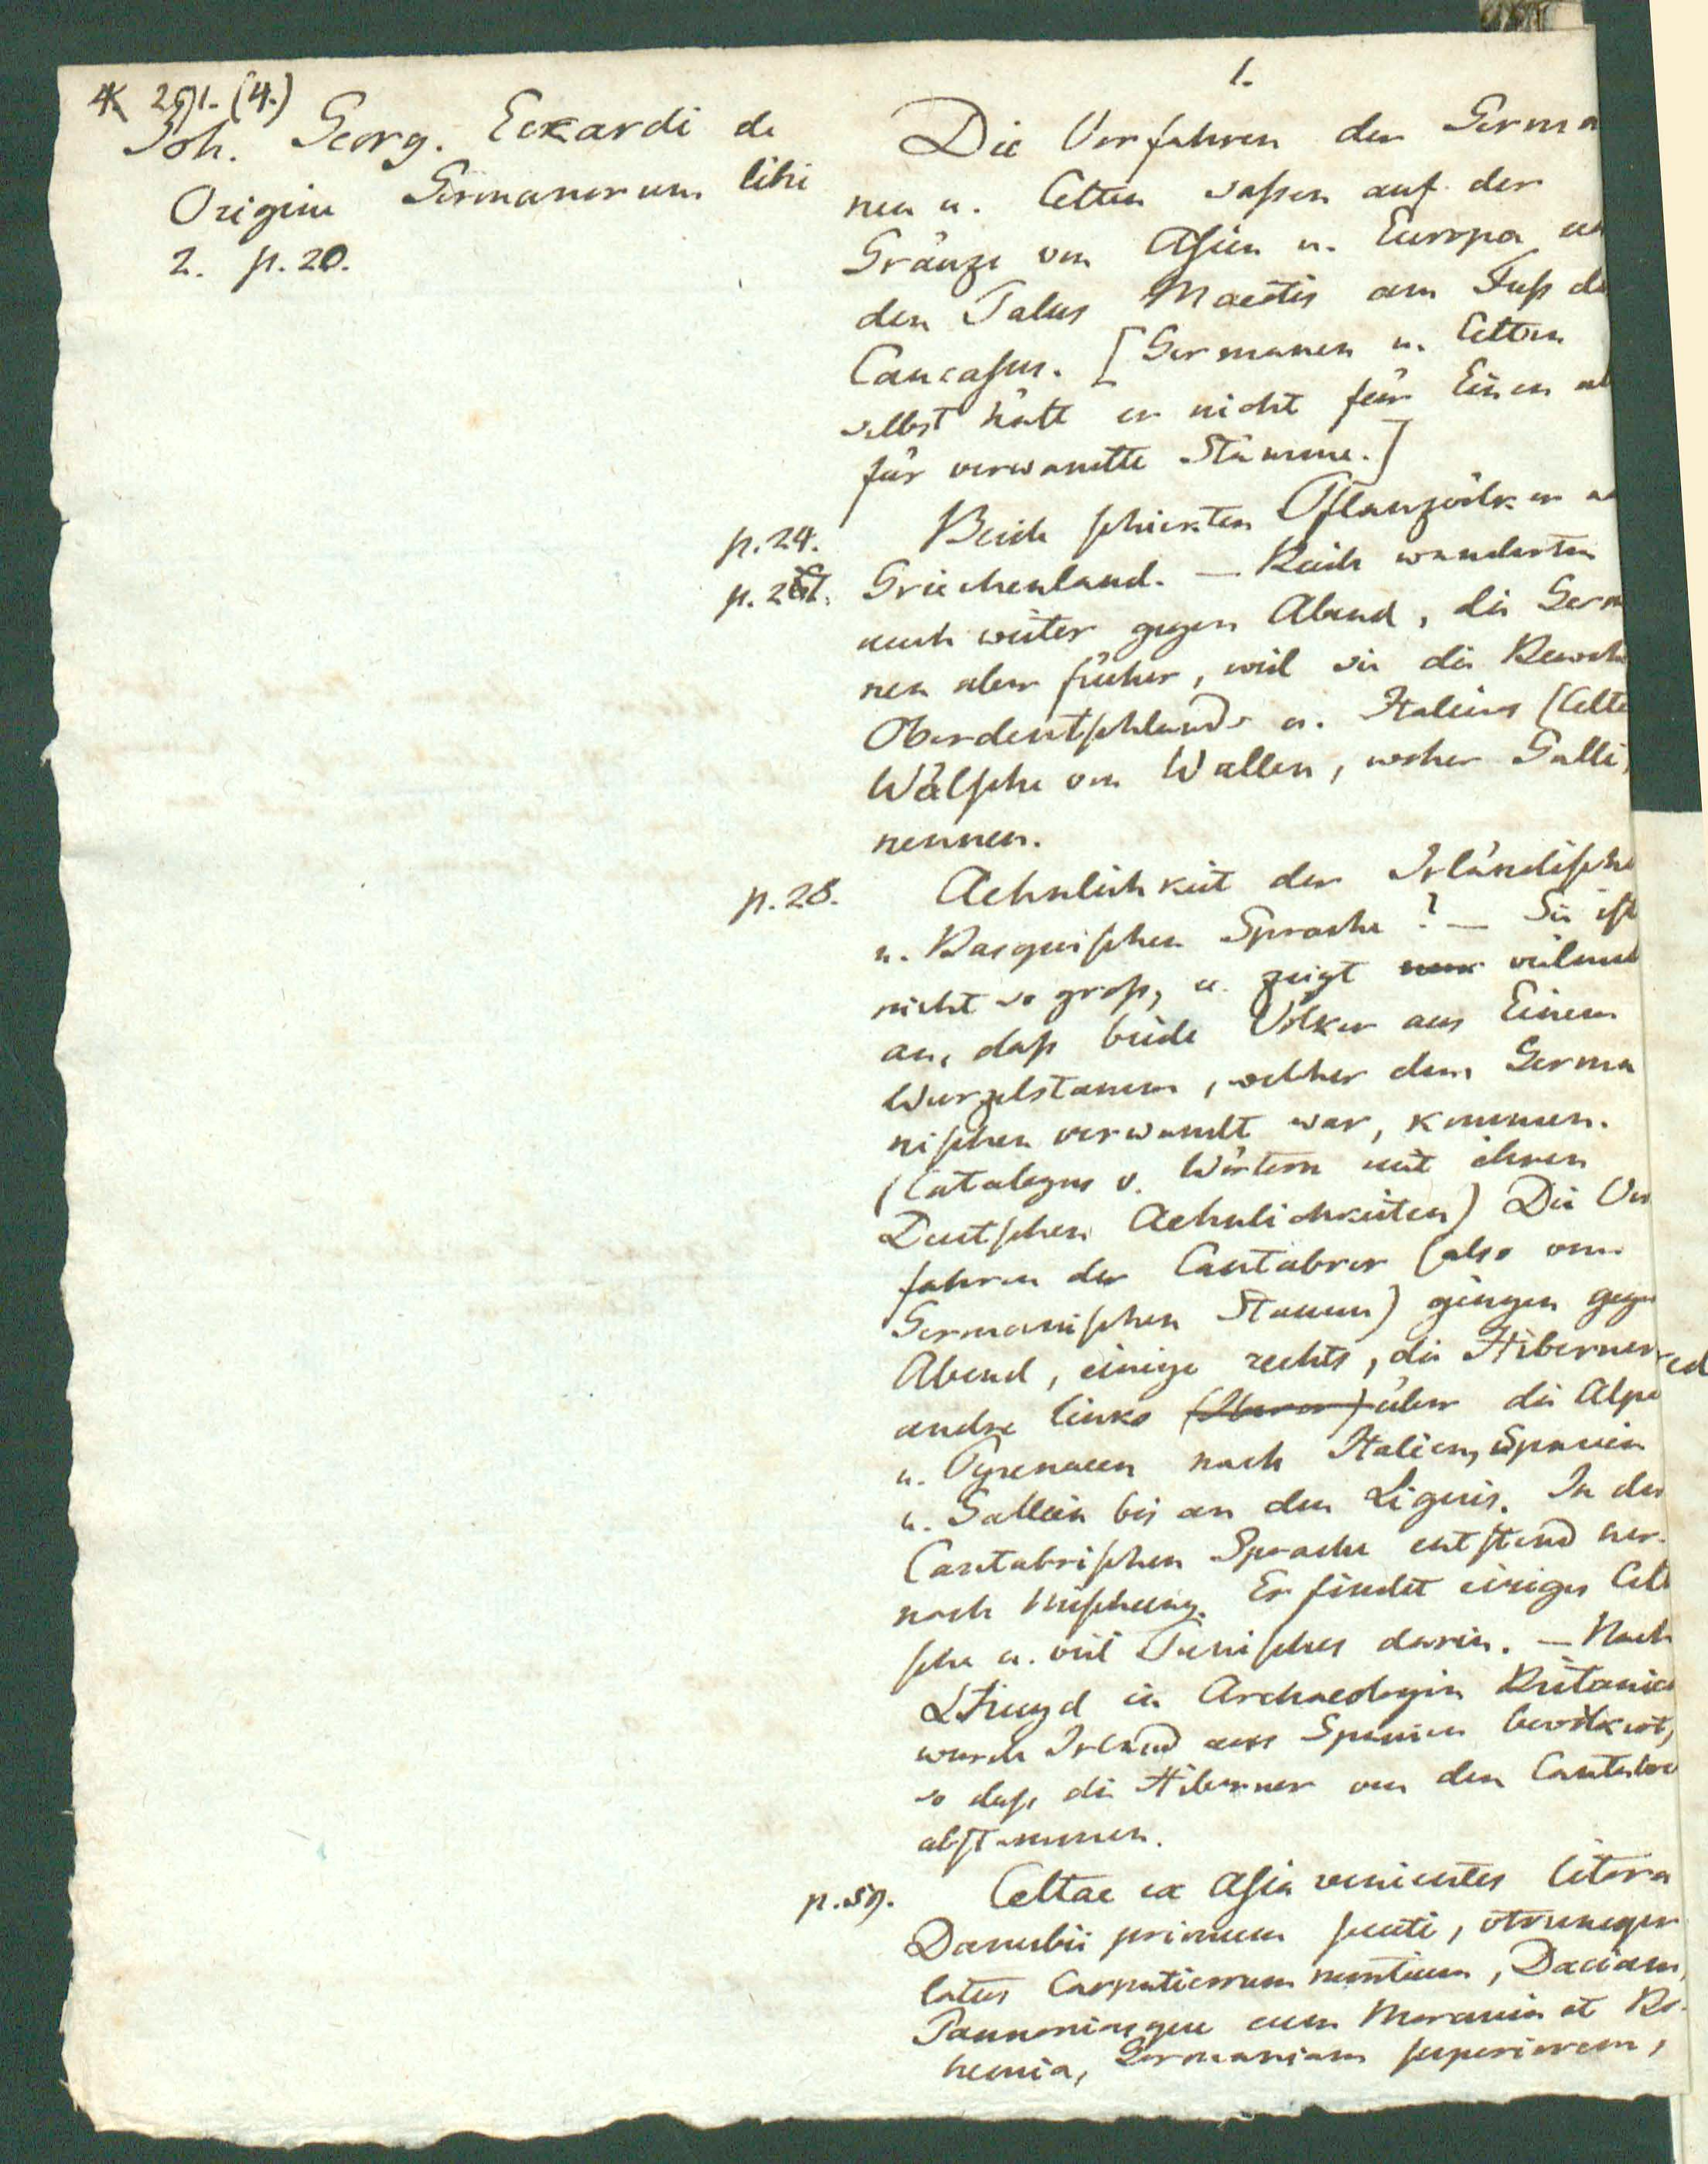 291. (4.)
Joh. Georg. Eckardi de
Origine Germanorum libri
2. p. 20.
1.
Die Vorfahren der Germa
nen u. Celten saßen auf der
Gränze von Asien u. Europa um
den Palus Maeotis am Fuß des
Caucasus. [Germanen u. Celten
selbst hält er nicht für Einen al
für verwandte Stämme.]
p. 24. Beide schickten Pflanzvölker na
p. 26. Griechenland. — Beide wanderten
auch weiter gegen Abend, die Germ
nen aber früher, weil sie die Bewoh
Oberdeutschlands u. Italiens (Celte
Wälsche von Wallen, woher Galli,
nennen.
p. 28. Aehnlichkeit der Irländische
u. Basquischen Sprache? — Sie ist
nicht so groß, u. zeigt vielmeh
an, daß beide Völker aus Einem
Wurzelstamm, welcher dem Germa
nischen verwandt war, kommen.
(Catalogus v. Wörtern mit ihren
Deutschen Aehnlichkeiten) Die Vor
fahren der Cantabrer (also vom
Germanischen Stamm) gingen gegen
Abend, einige rechts, die Hiberner
andre links (Iberer) über die Alpe
u. Pyrenaeen nach Italien, Spanien
u. Gallien bis an den Ligeris. In der
Cantabrischen Sprache entstand her-
nach Mischung. Er findet einiges Celt
sche u. viel Punisches darin. — Nach
Lhuyd in Archaeologia Britanica
wurde Irland aus Spanien bevölkert,
so daß die Hiberner von den Cantabre
abstammen.
p. 59. Celtae ex Asia venientes litora
Danubii primum secuti, utrumque
latus Carpaticorum montium, Daciam,
Pannoniamque cum Moravia et Bo-
hemia, Germaniam superiorem,